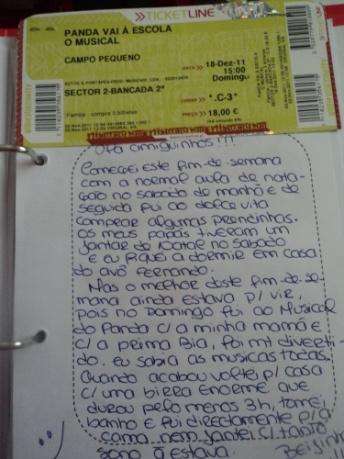 TICKETLINE
PANDA VAI À ESCOLA
O MUSICAL
CAMPO PEQUENO
DATA >> 18-Dez-11
15:00
Domingo
SECTOR 2-BANCADA 2ª
*.C-3*
PREÇO >> 18,00 €
Olá amiguinhos!!!
Comecei este fim-de-semana
com a normal aula de nata-
ção no sábado de manhã e de
seguida fui ao dolce vita
comprar algumas prendinhas.
Os meus papás tiveram um
jantar de Natal no sábado
e eu fiquei a dormir em casa
do avô Fernando.
Mas o melhor deste fim-de-se-
mana ainda estava p/ vir,
pois no Domingo fui ao Musical
do Panda c/ a minha mamã e
c/ a prima Bia, foi mt diverti-
do. eu sabia as musicas todas.
Quando acabou voltei p/ casa
c/ uma birra enorme que
durou pelo menos 3h, tomei
banho e fui directamente p/ a
cama nem jantei c/ tanto
sono q estava. Beijinho